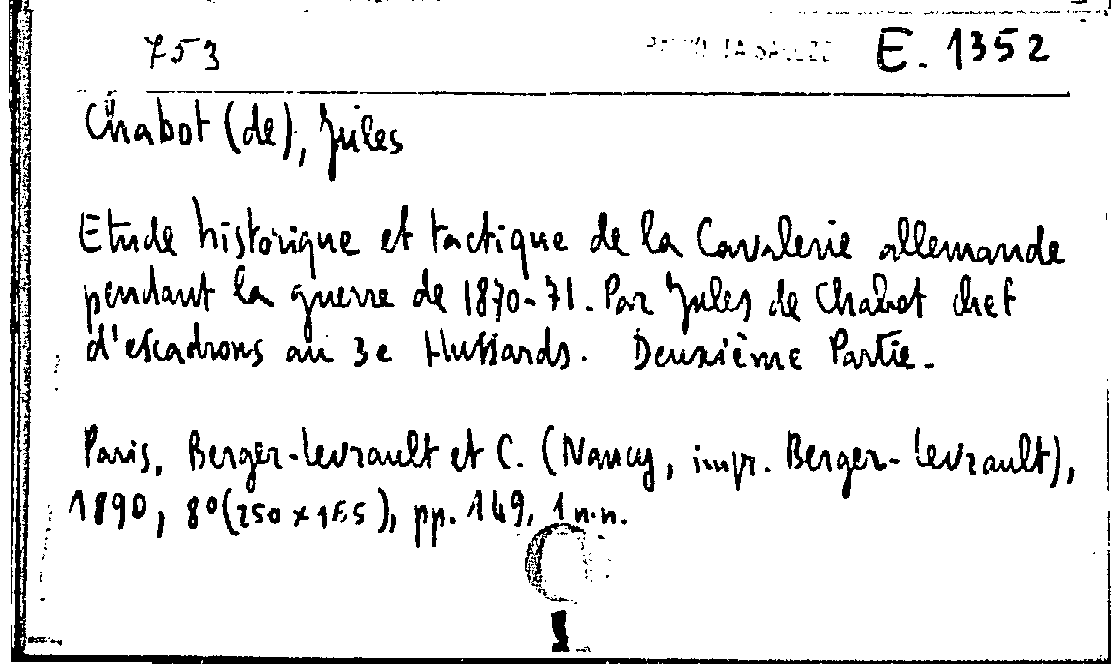 753 E. 1352
Chabot (de), Jules
Etude historique et tactique de la Cavalerie allemande
pendant la guerre de 1870-71. Par Jules de Chabot chef
d'escadrons au 3e Hussards. Deuxième Partie.
Paris, Berger-Levrault et C. (Nancy, impr. Berger-Levrault),
1890, 8º (250 x 165), pp. 149, 1 n.n.